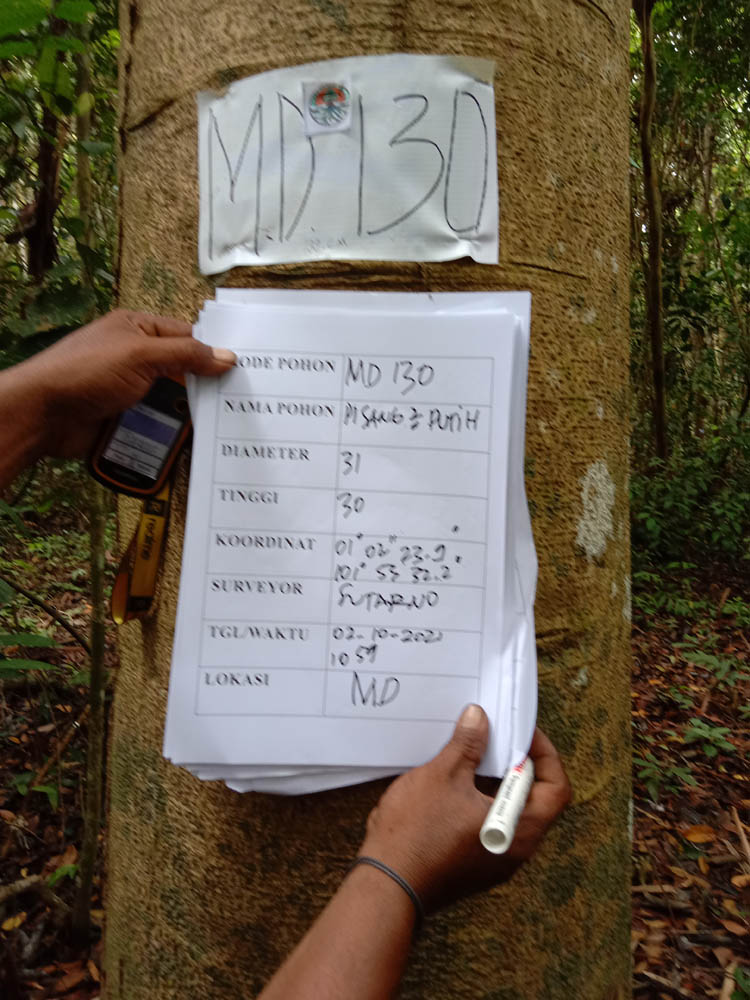 MD 130
KODE POHON MD 130
NAMA POHON PISANG2 PUTIH
DIAMETER 31
TINGGI 30
KOORDINAT 01° 02" 23.9"
101° 53 32.2"
SURVEYOR SUTARNO
TGL/WAKTU 02-10-2021
10 59
LOKASI MD
realme